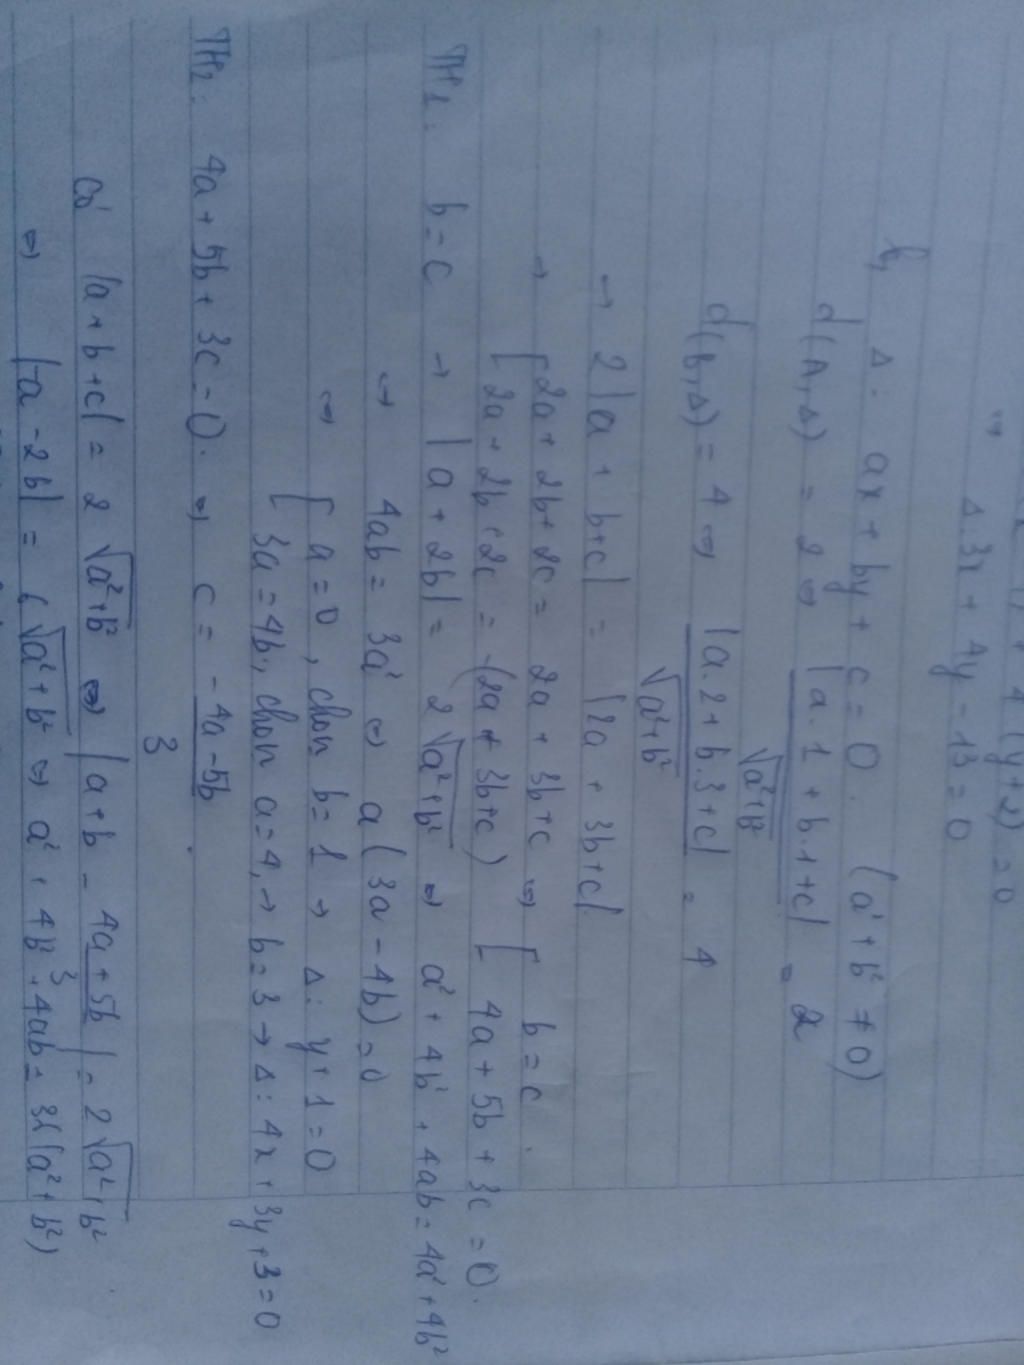 Δ: 3x + 4y - 13 = 0
b, Δ: ax + by + c = 0. (a² + b² ≠ 0)
d(A,Δ) = 2 ⇔ |a.1 + b.1 + c| / √a²+b² = 2
d(B,Δ) = 4 ⇔ |a.2 + b.3 + c| / √a²+b² = 4
→ 2|a + b + c| = |2a + 3b + c|
→ [ 2a + 2b + 2c = 2a + 3b + c ⇔ [ b = c.
[ 2a + 2b + 2c = -(2a + 3b + c) [ 4a + 5b + 3c = 0.
TH1: b = c → |a + 2b| = 2√a²+b² ⇔ a² + 4b² + 4ab = 4a² + 4b²
⇔ 4ab = 3a² ⇔ a(3a - 4b) = 0
⇔ [ a = 0, chọn b = 1 → Δ: y + 1 = 0
[ 3a = 4b, chọn a = 4, → b = 3 → Δ: 4x + 3y + 3 = 0
TH2: 4a + 5b + 3c = 0. ⇔ c = -4a - 5b / 3
Có |a + b + c| = 2√a²+b² ⇔ |a + b - 4a + 5b / 3| = 2√a²+b²
⇔ |-a - 2b| = 6√a²+b² ⇔ a² + 4b² + 4ab = 36(a² + b²)